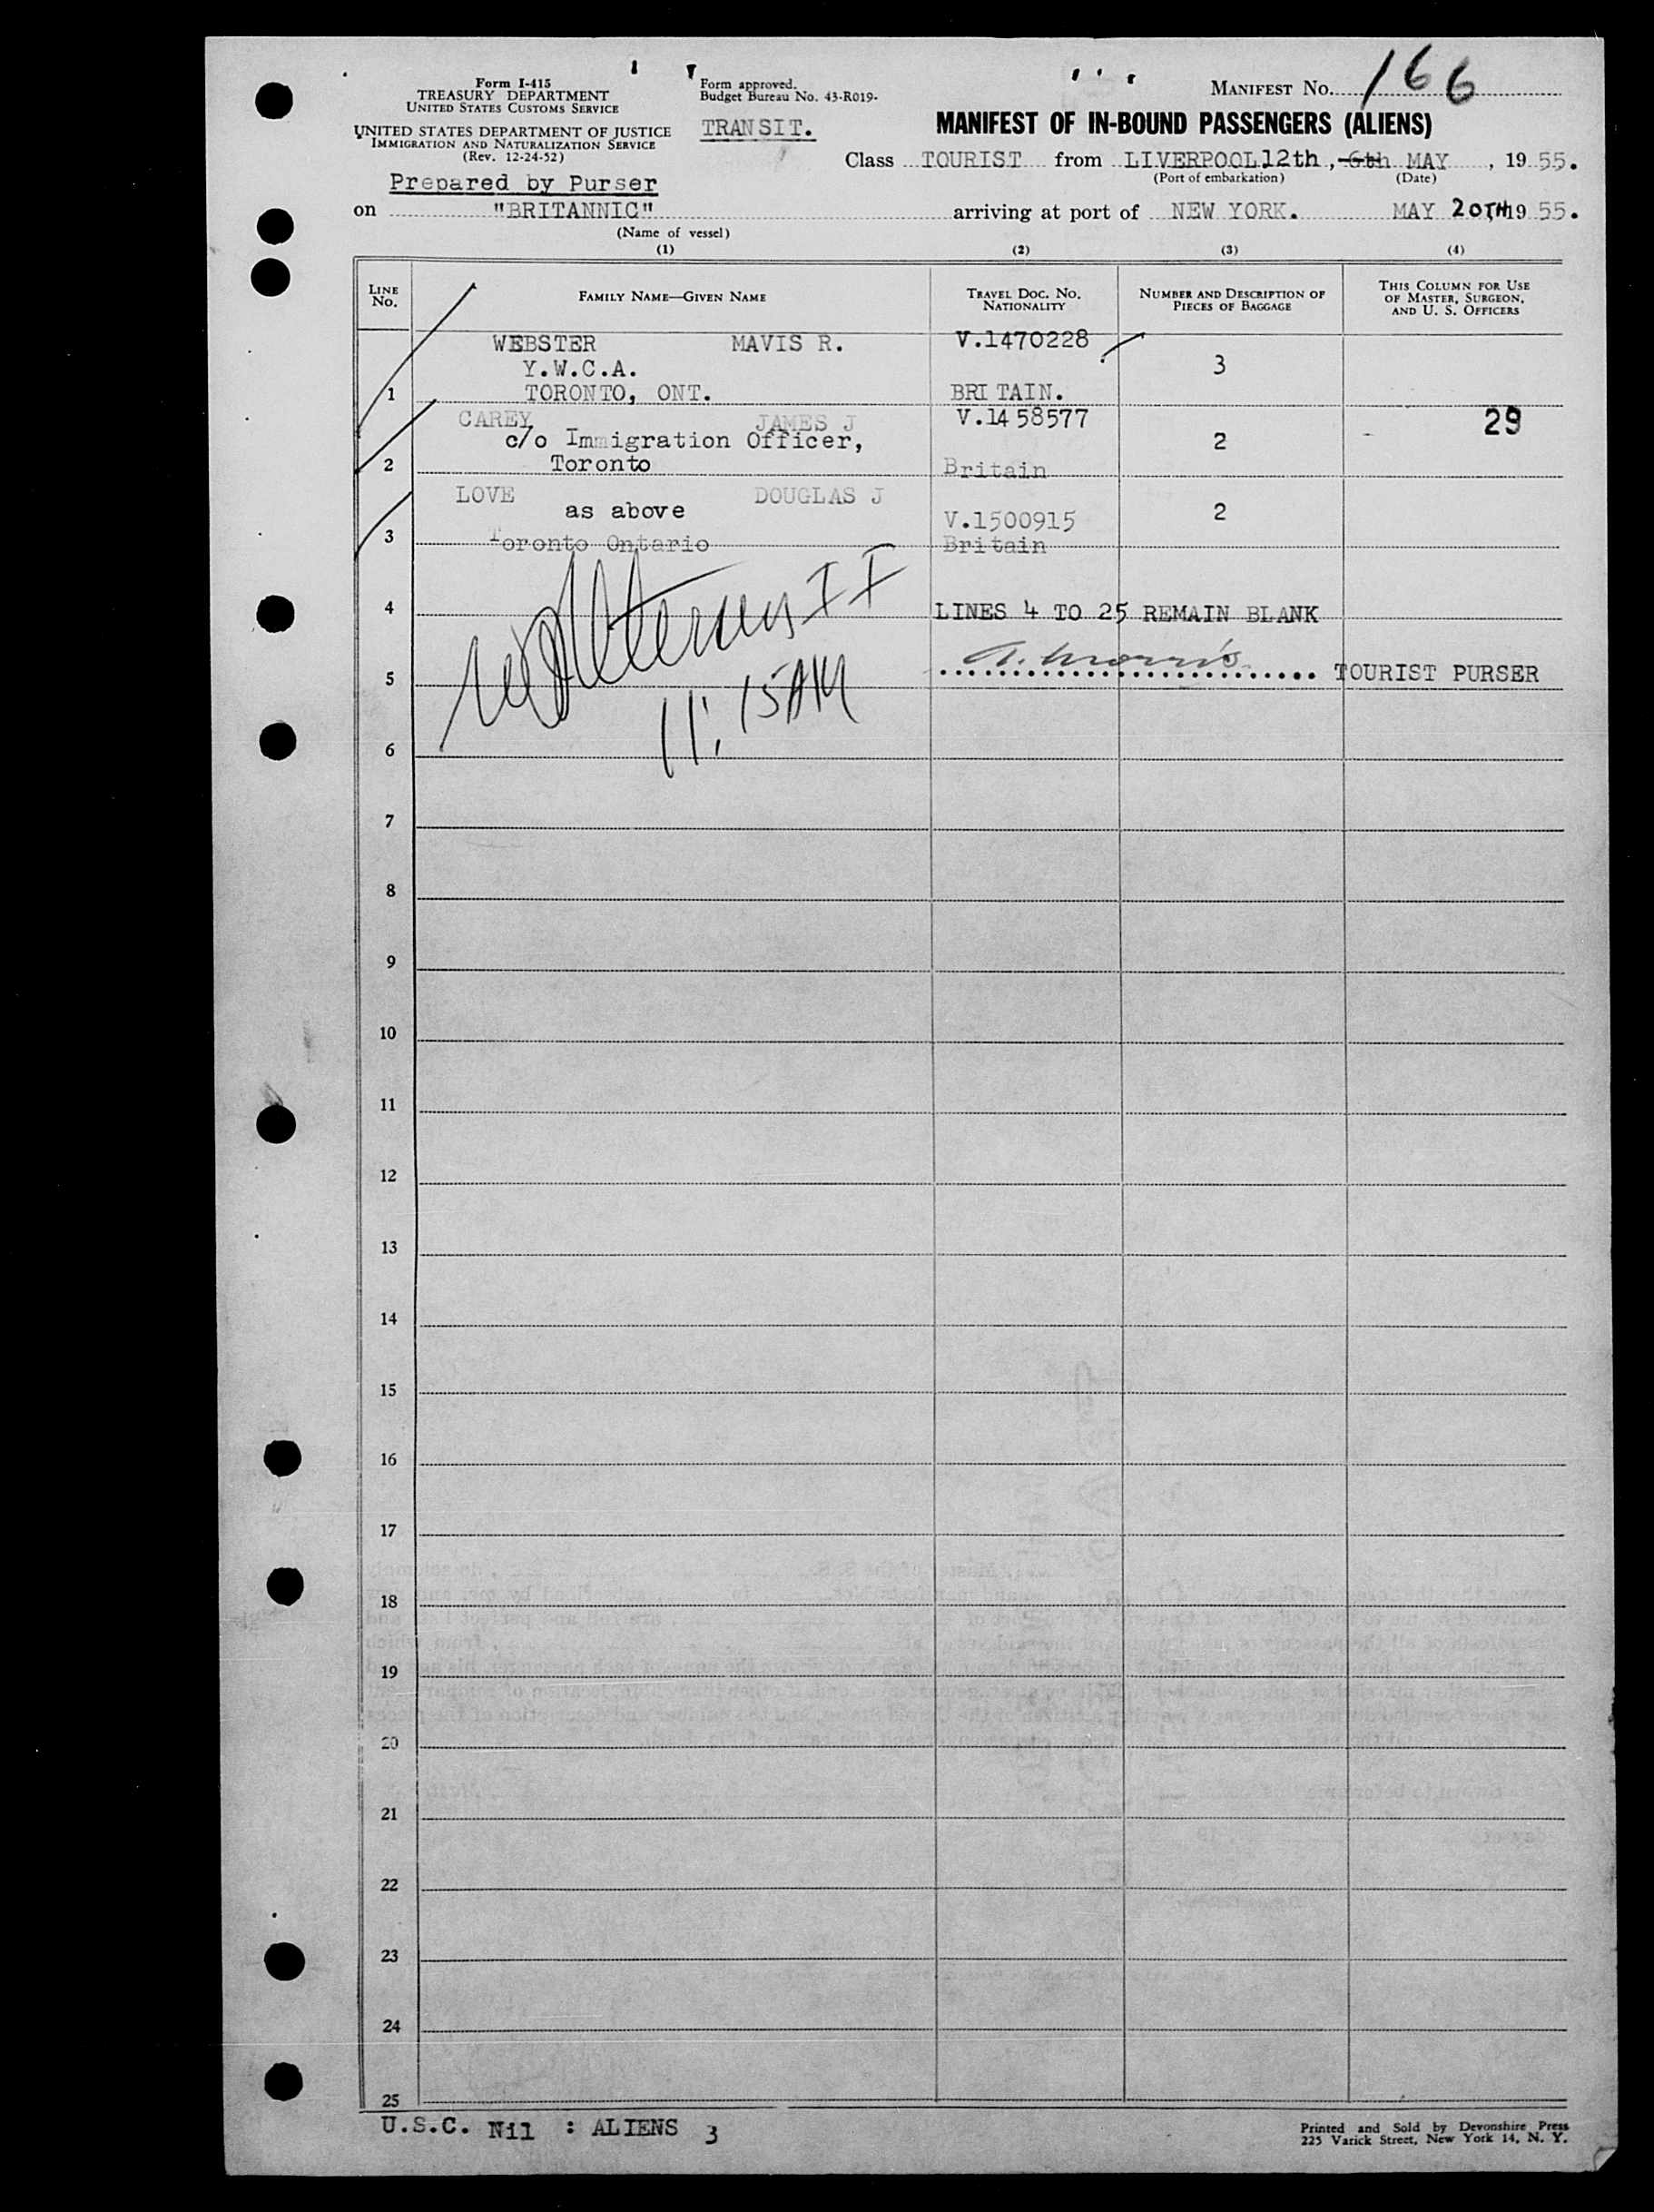 Form I-415
TREASURY DEPARTMENT
UNITED STATES CUSTOMS SERVICE
UNITED STATES DEPARTMENT OF JUSTICE
IMMIGRATION AND NATURALIZATION SERVICE
(Rev. 12-24-52)
Form approved.
Budget Bureau No. 43-R019-
TRANSIT.
MANIFEST NO. 166
MANIFEST OF IN-BOUND PASSENGERS (ALIENS)
Class TOURIST from LIVERPOOL 12th, 6th MAY, 19 55.
(Port of embarkation) (Date)
Prepared by Purser
on "BRITANNIC" arriving at port of NEW YORK. MAY 20TH 19 55.
(Name of vessel)
(1) (2) (3) (4)
LINE NO.
FAMILY NAME—GIVEN NAME
TRAVEL DOC. NO.
NATIONALITY
NUMBER AND DESCRIPTION OF
PIECES OF BAGGAGE
THIS COLUMN FOR USE
OF MASTER, SURGEON,
AND U. S. OFFICERS
WEBSTER MAVIS R. V.1470228
Y.W.C.A. 3
1 TORONTO, ONT. BRITAIN.
CAREY JAMES J V.1458577 29
c/o Immigration Officer, 2
2 Toronto Britain
LOVE DOUGLAS J
as above V.1500915 2
3 Toronto Ontario Britain
4 LINES 4 TO 25 REMAIN BLANK
5 A. Morris TOURIST PURSER
11:15AM
6
7
8
9
10
11
12
13
14
15
16
17
18
19
20
21
22
23
24
25
U.S.C. Nil : ALIENS 3
Printed and Sold by Devonshire Press
225 Varick Street, New York 14, N. Y.